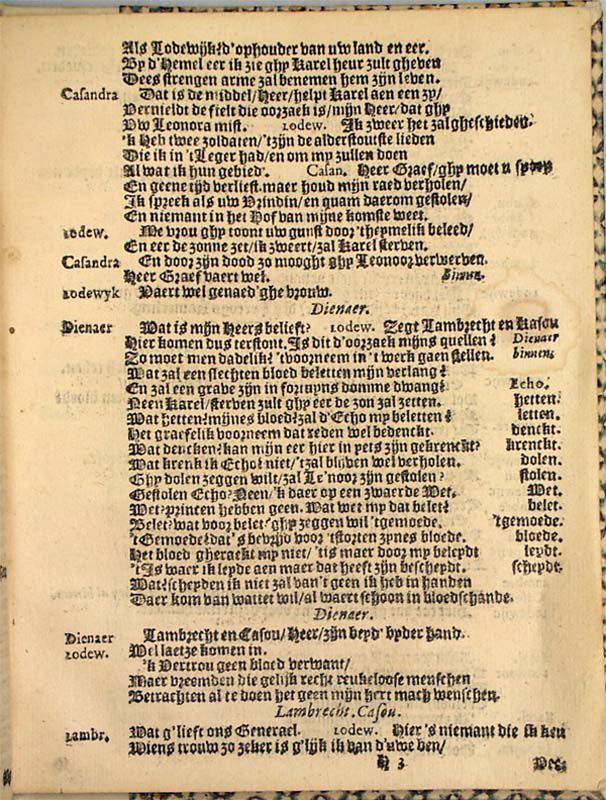 Als Lodewijk? d'ophouder van uw land en eer.
By d'Hemel eer ik zie ghy Karel heur zult gheven
Dees strengen arme zal benemen hem zijn leven.
Casandra Dat is de middel/Heer/helpt Karel aen een zy/
Vernieldt de fielt die oorzaek is/mijn Heer/dat ghy
Uw Leonora mist. Lodew. Ik zweer het zal gheschieden.
'k Heb twee zoldaten/'tzijn de alderstoutste lieden
Die ik in 't Leger had/en om my zullen doen
Al wat ik hun gebied. Casan. Heer Graef/ghy moet u spoen
En geene tijd verliest. maer houd mijn raed verholen/
Ik spreek als uw Vrindin/en quam daerom gestolen/
En niemant in het Hof van mijne komste weet.
Lodew. Me vrou ghy toont uw gunst door 'theymelik beleed/
En eer de zonne zet/ik zweert/zal Karel sterven.
Casandra En door zijn dood zo mooght ghy Leonoor verwerven.
Heer Graef vaert wel. binnen.
Lodewyk Vaert wel genaed'ghe vrouw.
Dienaer.
Dienaer Wat is mijn Heers belieft? Lodew. Zegt Lambrecht en Kasou
Hier komen dus terstont. Is dit d'oorzaek mijns quellen? Dienaer
Zo moet men dadelik? 'tvoorneem in 't werk gaen stellen. binnen.
Wat zal een slechten bloed beletten mijn verlang?
En zal een grave zijn in fortuyns domme dwang? Echo.
Neen Karel/sterven zult ghy eer de zon zal zetten. hetten?
Wat hetten? mijnes bloed? zal d'Echo my beletten? letten.
Het graefelik voorneem dat reden wel bedenckt. denckt.
Wat dencken? kan mijn eer hier in yets zijn gekrenckt? krenckt.
Wat krenk ik Echo? niet/'tzal blijven wel verholen. dolen.
Ghy dolen zeggen wilt/zal Le'noor zijn gestolen? stolen.
Gestolen Echo? Neen/'k daer op een zwaerde Wet. Wet.
Wet? printen hebben geen. Wat wet my dat belet? belet.
Belet? wat voor belet? ghy zeggen wil 'tgemoede. 'tgemoede.
'tGemoede? dat's bevrijd voor 'tstorten zynes bloede. bloede.
Het bloed gheraekt my niet/'tis maer door my beleydt leydt.
't Is waer ik leyde aen maer dat heeft zijn bescheydt. scheydt.
Wat? scheyden ik niet zal van't geen ik heb in handen
Daer kom van wattet wil/al waert schoon in bloedschande.
Dienaer.
Dienaer Lambrecht en Casou/Heer/zijn beyd' byder hand.
Lodew. Wel laetze komen in.
'k Vertrou geen bloed verwant/
Maer vreemden die gelijk recht reukeloose menschen
Betrachten al te doen het geen mijn hert mach wenschen.
Lambrecht. Casou.
Lambr. Wat g'lieft ons Generael. Lodew. Hier's niemant die ik ken
Wiens trouw zo zeker is g'lijk ik van d'uwe ben/
H 3 Dees